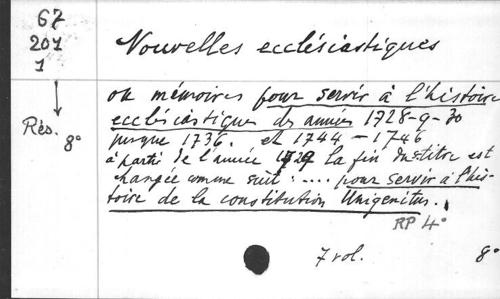 67
201
1
Rés. 8°
Nouvelles ecclésiastiques
ou mémoires pour servir à l'histoire
ecclésiastique des années 1728-9-30
jusque 1736. et 1744-1746
à partir de l'année 1729 la fin du titre est
changée comme suit : .... pour servir à l'his-
toire de la constitution Unigenitus.
RP 4°
7 vol. 8°